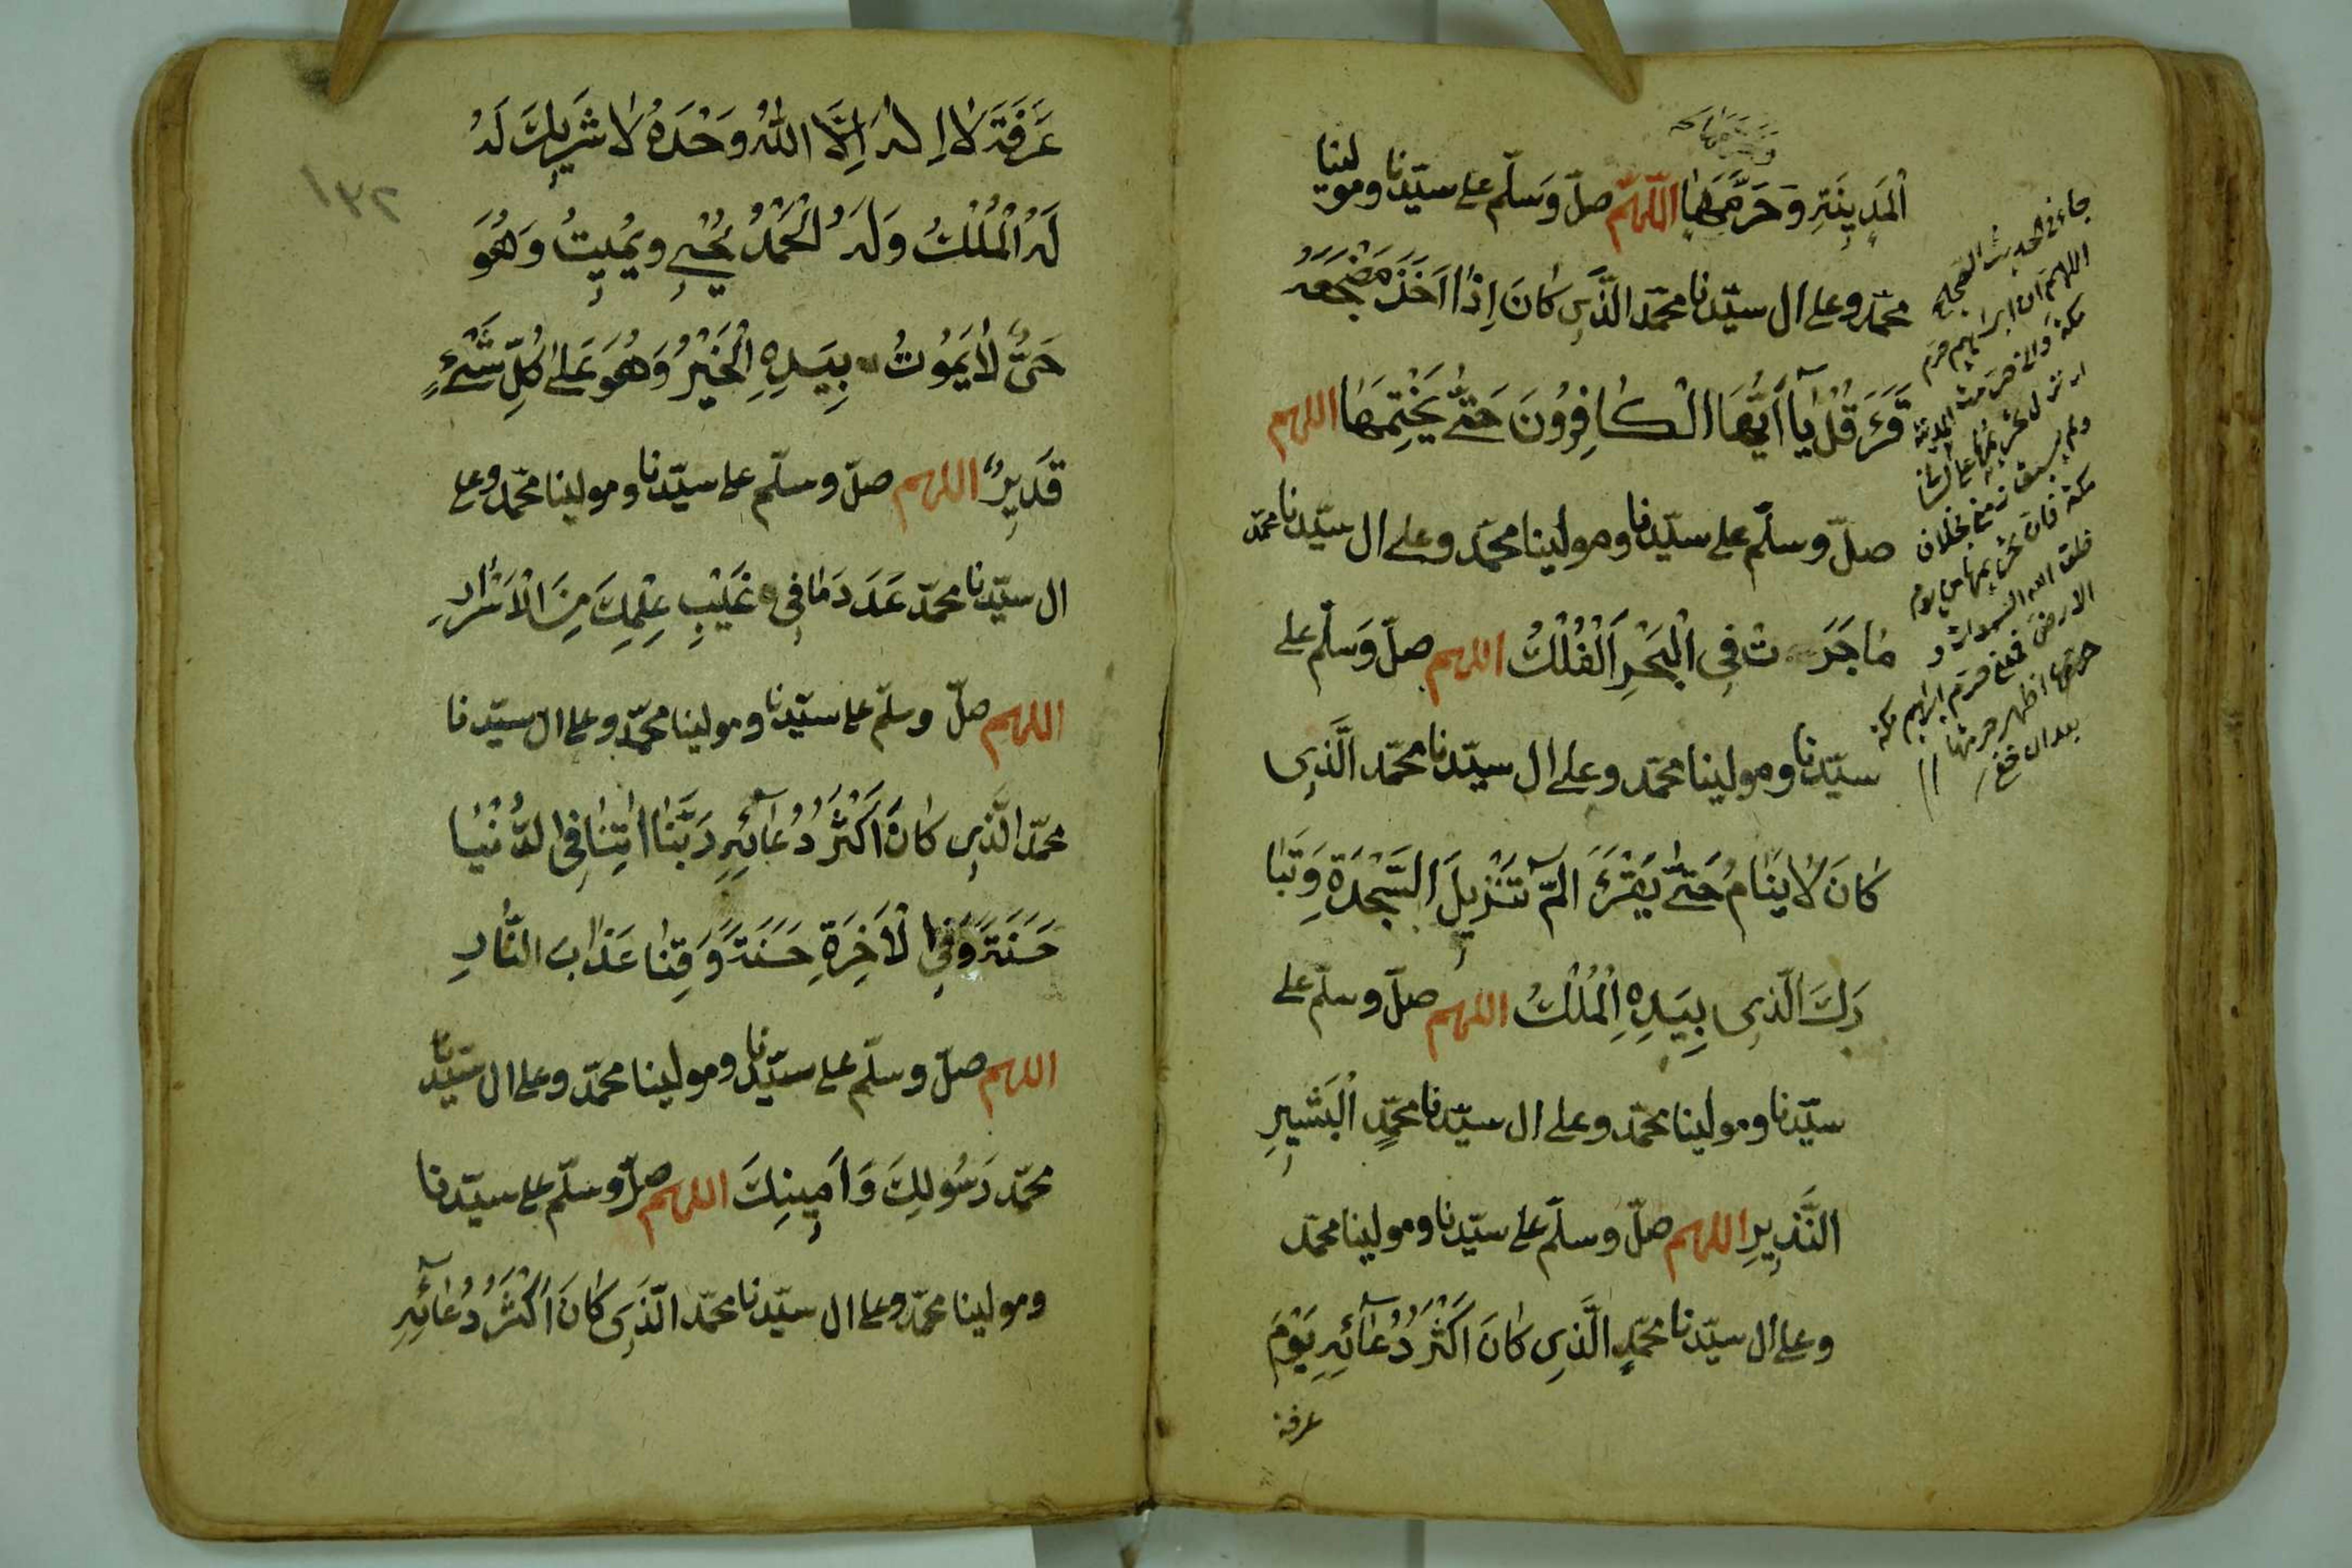 اَلْمَدِينَةِ وَحَرَّمَهَا اللّٰهُمَّ صلّ وَسلّم على سيّدنا ومولينا
محمّد وعلى ال سيّدنا محمّد الَّذِى كَانَ اِذَا اَخَذَ مَضْجَعَهُ
قَرَءَ قُلْ يَآ اَيُّهَا الْكَافِرُونَ حَتّٰى يَخْتِمَهَا اللهم
صلّ وسلّم على سيّدنا ومولينا محمّد وعلى ال سيّدنا محمّد
مَا جَرَتْ فِى الْبَحْرِ اَلْفُلْكُ اللهم صلّ وَسلّم على
سيّدنا ومولينا محمّد وعلى ال سيّدنا محمّد الَّذِى
كَانَ لَا يَنَامُ حَتّٰى يَقْرَءَ الٓمّ تَنْزِيلَ السَّجْدَةِ وَتَبَا
رَكَ الَّذِى بِيَدِهِ الْمُلْكُ اللهم صلّ وسلّم على
سيّدنا ومولينا محمّد وعلى ال سيّدنا محمّدٍ الْبَشِيرِ
النَّذِيرِ اللهم صلّ وسلّم على سيّدنا ومولينا محمّد
وعلى ال سيّدنا محمّدٍ الَّذِى كَانَ اَكْثَرُ دُعَآئِهِ يَوْمَ
عرفة
جاء فى الحديث الصحيح
اللهم ان ابراهيم حرم
مكة وانى حرمت المدينة
خلق الله السموات و
الارض فمعنى حرم ابراهيم مكة
اظهر حرمتها
١٣٢
عَرَفَةَ لَا اِلٰهَ اِلَّا اللّٰهُ وَحْدَهُ لَا شَرِيكَ لَهُ
لَهُ الْمُلْكُ وَلَهُ الْحَمْدُ يُحْيِى وَيُمِيتُ وَهُوَ
حَىٌّ لَا يَمُوتُ بِيَدِهِ الْخَيْرُ وَهُوَ عَلٰى كُلِّ شَىْءٍ
قَدِيرٌ اللهم صلّ وسلّم على سيّدنا ومولينا محمّد وعلى
ال سيّدنا محمّد عَدَدَ مَا فِى غَيْبِ عِلْمِكَ مِنَ الْاَسْرَارِ
اللهم صلّ وسلّم على سيّدنا ومولينا محمّد وعلى ال سيّدنا
محمّد الَّذِى كَانَ اَكْثَرُ دُعَآئِهِ رَبَّنَا اٰتِنَا فِى الدُّنْيَا
حَسَنَةً وَفِى الْاٰخِرَةِ حَسَنَةً وَقِنَا عَذَابَ النَّارِ
اللهم صلّ وسلّم على سيّدنا ومولينا محمّد وعلى ال سيّدنا
محمّد رَسُولِكَ وَاَمِينِكَ اللهم صلّ وسلّم على سيّدنا
ومولينا محمّد وعلى ال سيّدنا محمّد الَّذِى كَانَ اَكْثَرُ دُعَآئِهِ